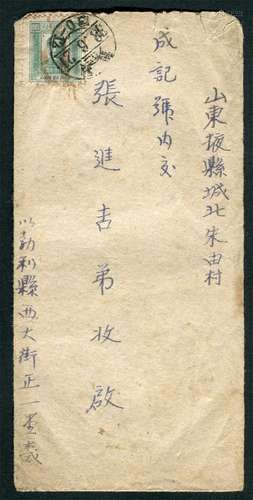 山東掖縣城北朱由村
成記號內交
張進吉弟收啟
勃利縣西大街正一